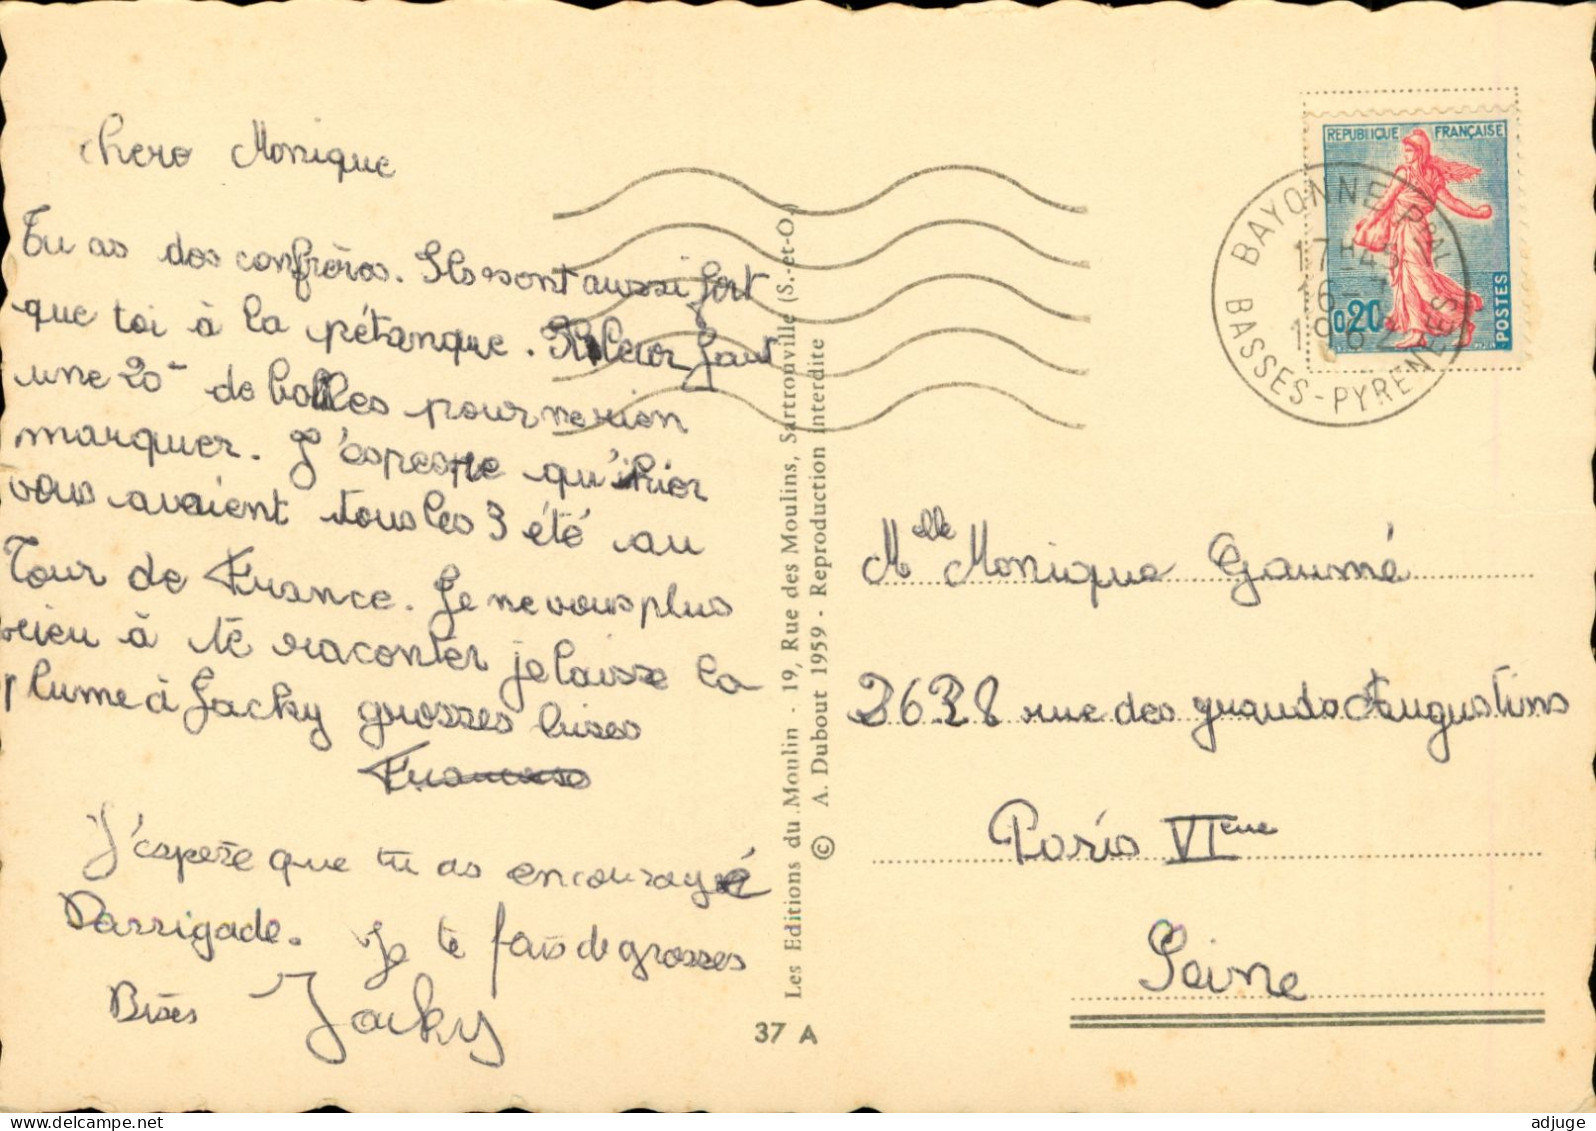 chere Monique
Tu as des confrères. Ils sont aussi fort
que toi à la pétanque. Il leur faut
une 20ne de boules pour ne rien
marquer. J'espere qu'hier
vous avaient tous les 3 été au
Tour de France. Je ne vous plus
rien à te raconter je laisse la
plume à Jacky grosses bises
J'espere que tu as encouragé
Darrigade. Je te fais de grosses
Bises Jacky
Les Editions du Moulin - 19, Rue des Moulins, Sartrouville (S.-et-O.)
© A. Dubout 1959 - Reproduction interdite
37 A
REPUBLIQUE FRANÇAISE
0,20
POSTES
BAYONNE PPAL
17H45
16-7
1962
BASSES-PYRENEES
Mlle Monique Gaumé
rue des grands Augustins
Paris VIeme
Seine
adjuge.com